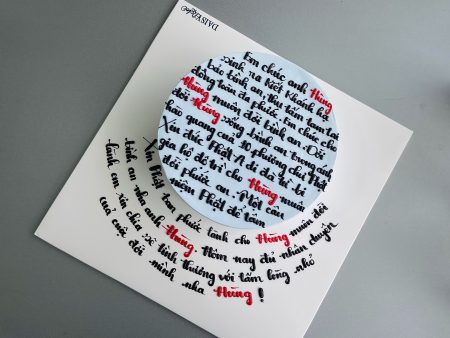 DAISY
Em chúc anh Hùng
sinh ra biết Khánh hạ
bảo bình an, thu tâm tam tai
đồng toàn đa phước. Em chúc cho
đời Hùng muôn đời bình an. Đời
Hùng sống bình an trong ánh
hào quang của 10 phương chư Phật
Xin đức Phật A di đà từ bi
gia hộ độ trì cho Hùng muôn
đời phước an. Một câu
niệm Phật để tâm
Xin Phật ban phước lành cho Hùng muôn đời
bình an nha anh Hùng. Hôm nay đủ nhân duyên
lành em xin chia sẻ tình thương với tấm lòng nhỏ
của cuộc đời mình nha Hùng!